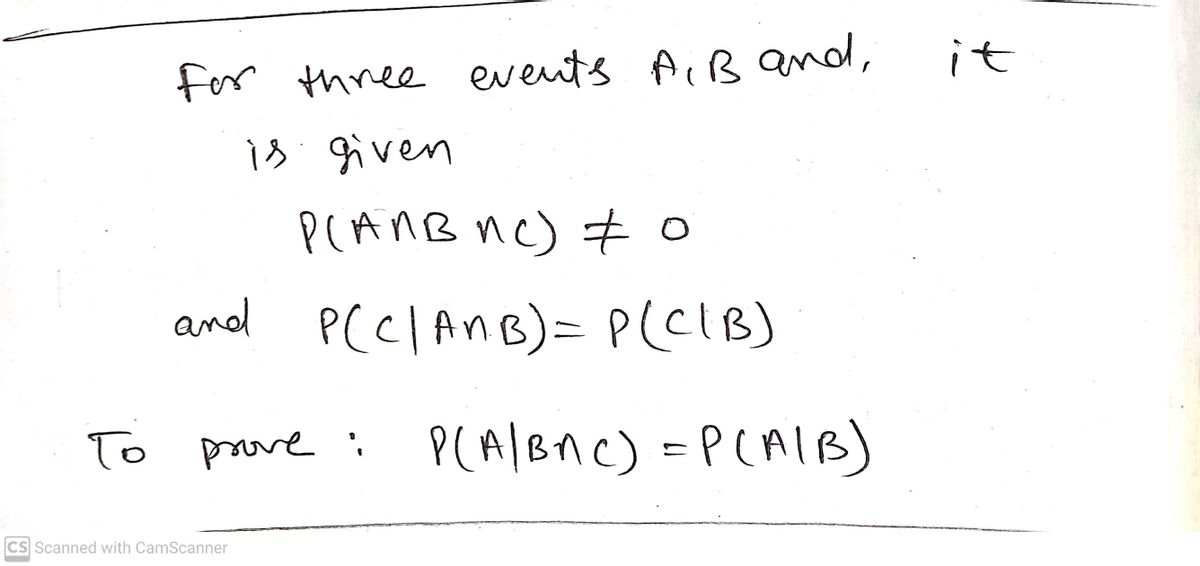 For three events A, B and, it
is given
P(A∩B∩C) ≠ 0
and P(C|A∩B) = P(C|B)
To prove : P(A|B∩C) = P(A|B)
CS Scanned with CamScanner